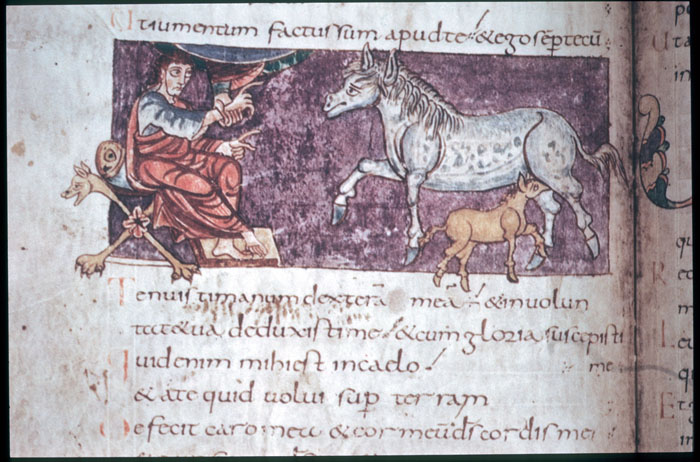 Ut iumentum factus sum apud te & ego sēp tecū
Tenuisti manum dexterā meā & in volun
tate tua deduxisti me & cum gloria suscepisti
me
Quid enim mihi est in caelo
& a te quid volui sup terram
Defecit caro mea & cor meū ds cordis mei